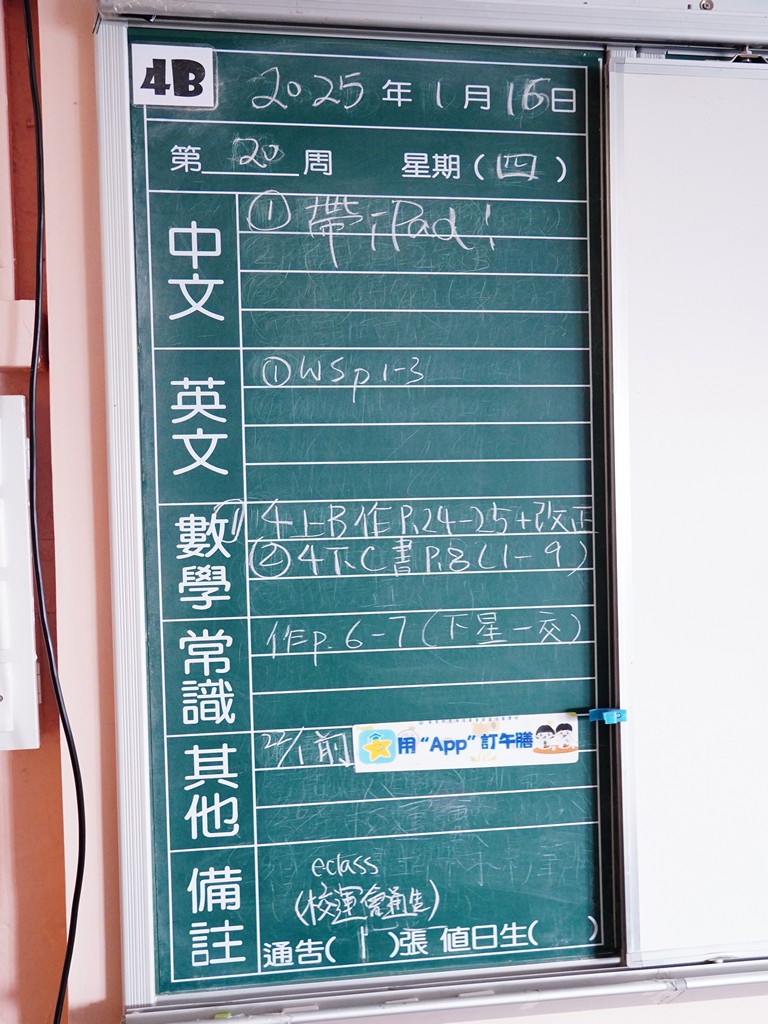 4B
2025年1月16日
第20周 星期(四)
中文
①帶iPad!
英文
①WS p1-3
數學
①4上B作P.24-25+改正
②4下C書P.8(1-9)
常識
作p.6-7(下星一交)
其他
22/1前
用“App”訂午膳
備註
eclass
(校運會通告)
通告(1)張 值日生( )